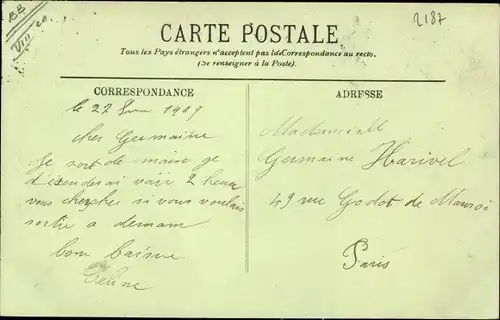 BB
VIII 20
2187
CARTE POSTALE
Tous les Pays étrangers n'acceptent pas la Correspondance au recto.
(Se renseigner à la Poste).
CORRESPONDANCE
le 22 1909
cher Germaine
Je sort de main je
d'esenderai voir 2 heur
vous chercher si vous voulais
sortir a demain
bon baiser
Céline
ADRESSE
Mademoiselle
Germaine Harivel
49 rue Godot de Mauroi
Paris